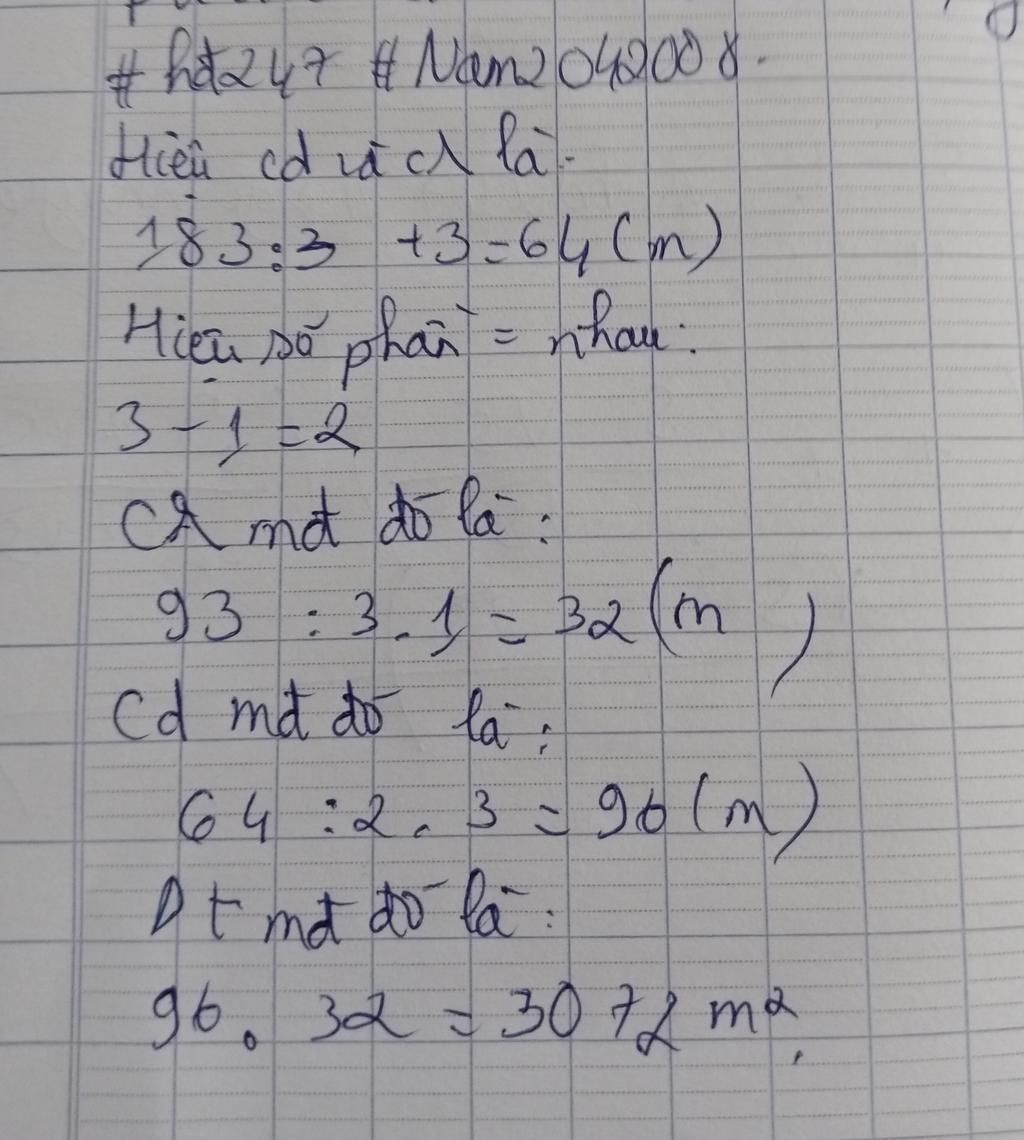 # hđ247 # Nam2042008.
Hiệu cd và cr là.
183:3 +3=64(m)
Hiệu số phần = nhau:
3-1=2
CR mđ đó là:
93 : 3.1 = 32(m)
Cd mđ đó là:
64 :2. 3 = 96(m)
Dt mđ đó là:
96. 32 = 3072 m²